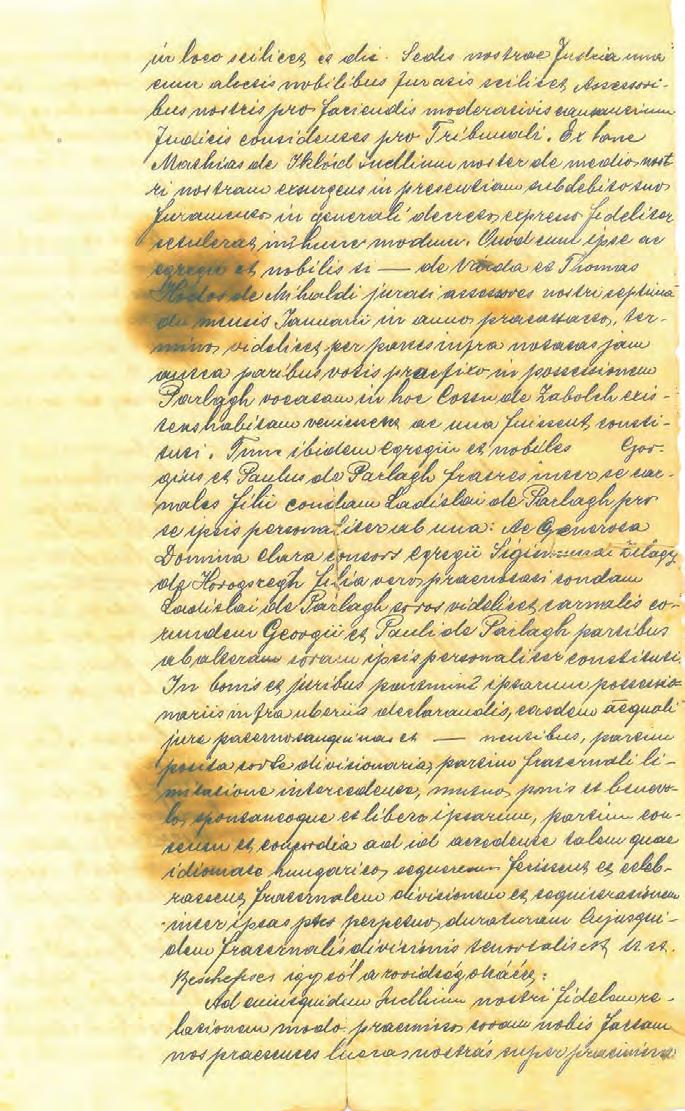 in loco scilicet et die. Sedis nostrae Judria una
cum alocis nobilibus Juratis scilicet Assessori-
bus nostris pro faciendis moderativis causarum
Judicis considentes pro Tribunali. Ex tunc
Mathias de Iklóid Judlium noster de medio nost
ri nostram exurgens in presentiam sub debito suo
Juramento in generali decreto expresso fideliter
retulerat in hunc modum. Quod cum ipse ac
egregii et nobilis si — de Varda et Thomas
de Mihaldi jurati assessores nostri septima
die mensis Januarii in anno praeattacto, ter-
mino videlicet per partes infra notatas jam
antea paribus votis praefixo in possessionem
Parlagh vocatam in hoc Cottu de Zabolch exis-
tens habitam venissent ac una fuissent consti-
tuti. Tunc ibidem Egregii et nobiles Geor-
gius et Paulus de Parlagh fratres inter se car-
nales filii condam Ladislai de Parlagh pro
se ipsis personaliter ab una: Ac Generosa
Domina Clara consors Egregii Sigismundi Zilagy
de Horogszegh filia vero praenotati condam
Ladislai de Parlagh soror videlicet carnalis eo-
rundem Georgii et Pauli de Parlagh partibus
ab alteram coram ipsis personaliter constituti.
In bonis et juribus ipsarum possessio-
nariis infra uberius declarandis, eosdem aequali
jure paterno sanguine et — nentibus, partim
posita sorte divisionaria, partim fraternali li-
mitatione intercedente, mutuo, puris et benevo-
lo, spontaneoque et libero ipsarum, partium con-
sensu et concordia ad id accedente talem quae
idiomate hungarico sequerem fecissent et celeb-
rassent fraternalem divisionem et sequestrationem
inter ipsas ptes perpetuo duraturam Cujusqui-
dem fraternalis divisionis tenor talis est
igy szól a
Ad cuiusquidem Judlium nostri fidelem re-
lationem modo praemisso coram nobis factam
nos praesentes literas nostras super praemissa